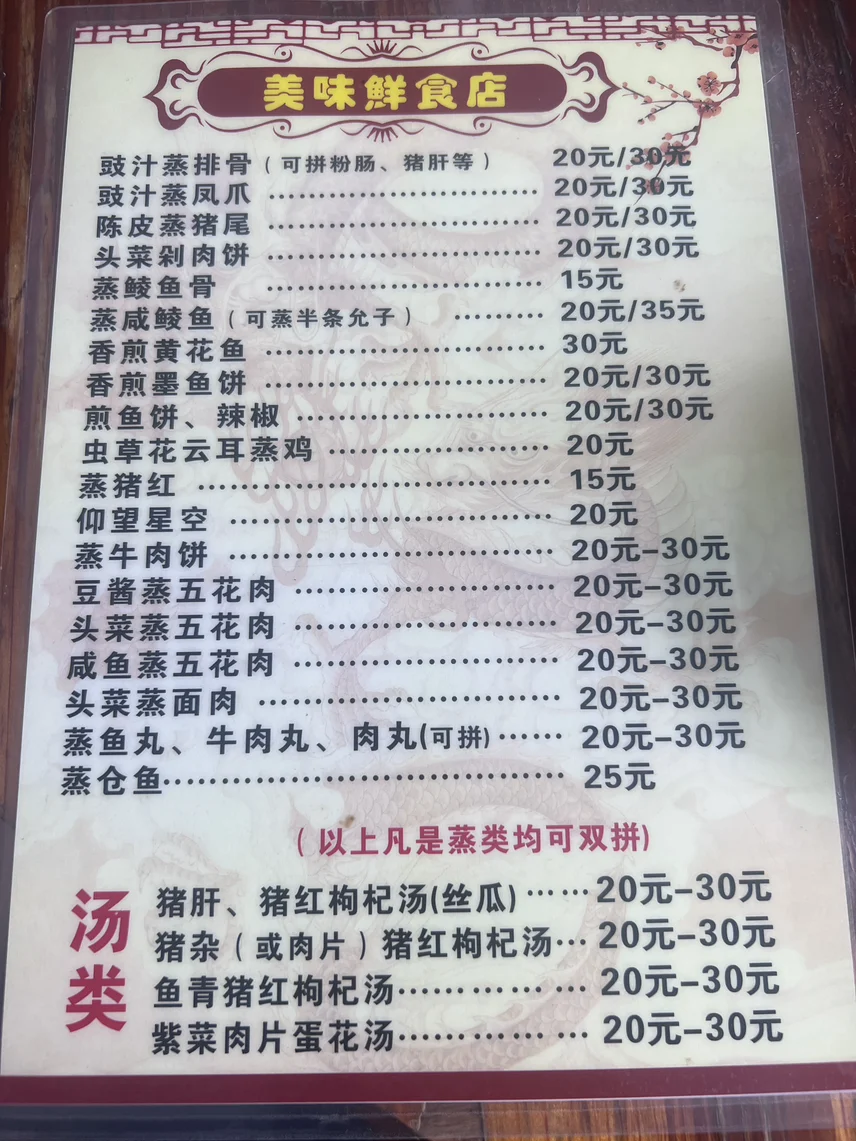 美味鲜食店
豉汁蒸排骨(可拼粉肠、猪肝等) 20元/30元
豉汁蒸凤爪 ………………………… 20元/30元
陈皮蒸猪尾 ………………………… 20元/30元
头菜剁肉饼 ………………………… 20元/30元
蒸鲮鱼骨 ………………………… 15元
蒸咸鲮鱼(可蒸半条允子) ……… 20元/35元
香煎黄花鱼 ………………………… 30元
香煎墨鱼饼 ………………………… 20元/30元
煎鱼饼、辣椒 ……………………… 20元/30元
虫草花云耳蒸鸡 …………………… 20元
蒸猪红 ……………………………… 15元
仰望星空 …………………………… 20元
蒸牛肉饼 …………………………… 20元–30元
豆酱蒸五花肉 ……………………… 20元–30元
头菜蒸五花肉 ……………………… 20元–30元
咸鱼蒸五花肉 ……………………… 20元–30元
头菜蒸面肉 ………………………… 20元–30元
蒸鱼丸、牛肉丸、肉丸(可拼) …… 20元–30元
蒸仓鱼………………………………… 25元
(以上凡是蒸类均可双拼)
汤类
猪肝、猪红枸杞汤(丝瓜) …… 20元–30元
猪杂(或肉片)猪红枸杞汤… 20元–30元
鱼青猪红枸杞汤……………… 20元–30元
紫菜肉片蛋花汤……………… 20元–30元